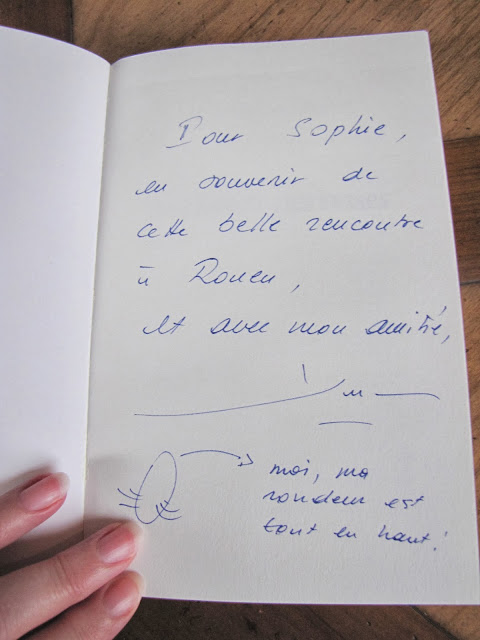 Pour Sophie,
en souvenir de
cette belle rencontre
à Rouen,
et avec mon amitié,
moi, ma
rondeur est
tout en haut!